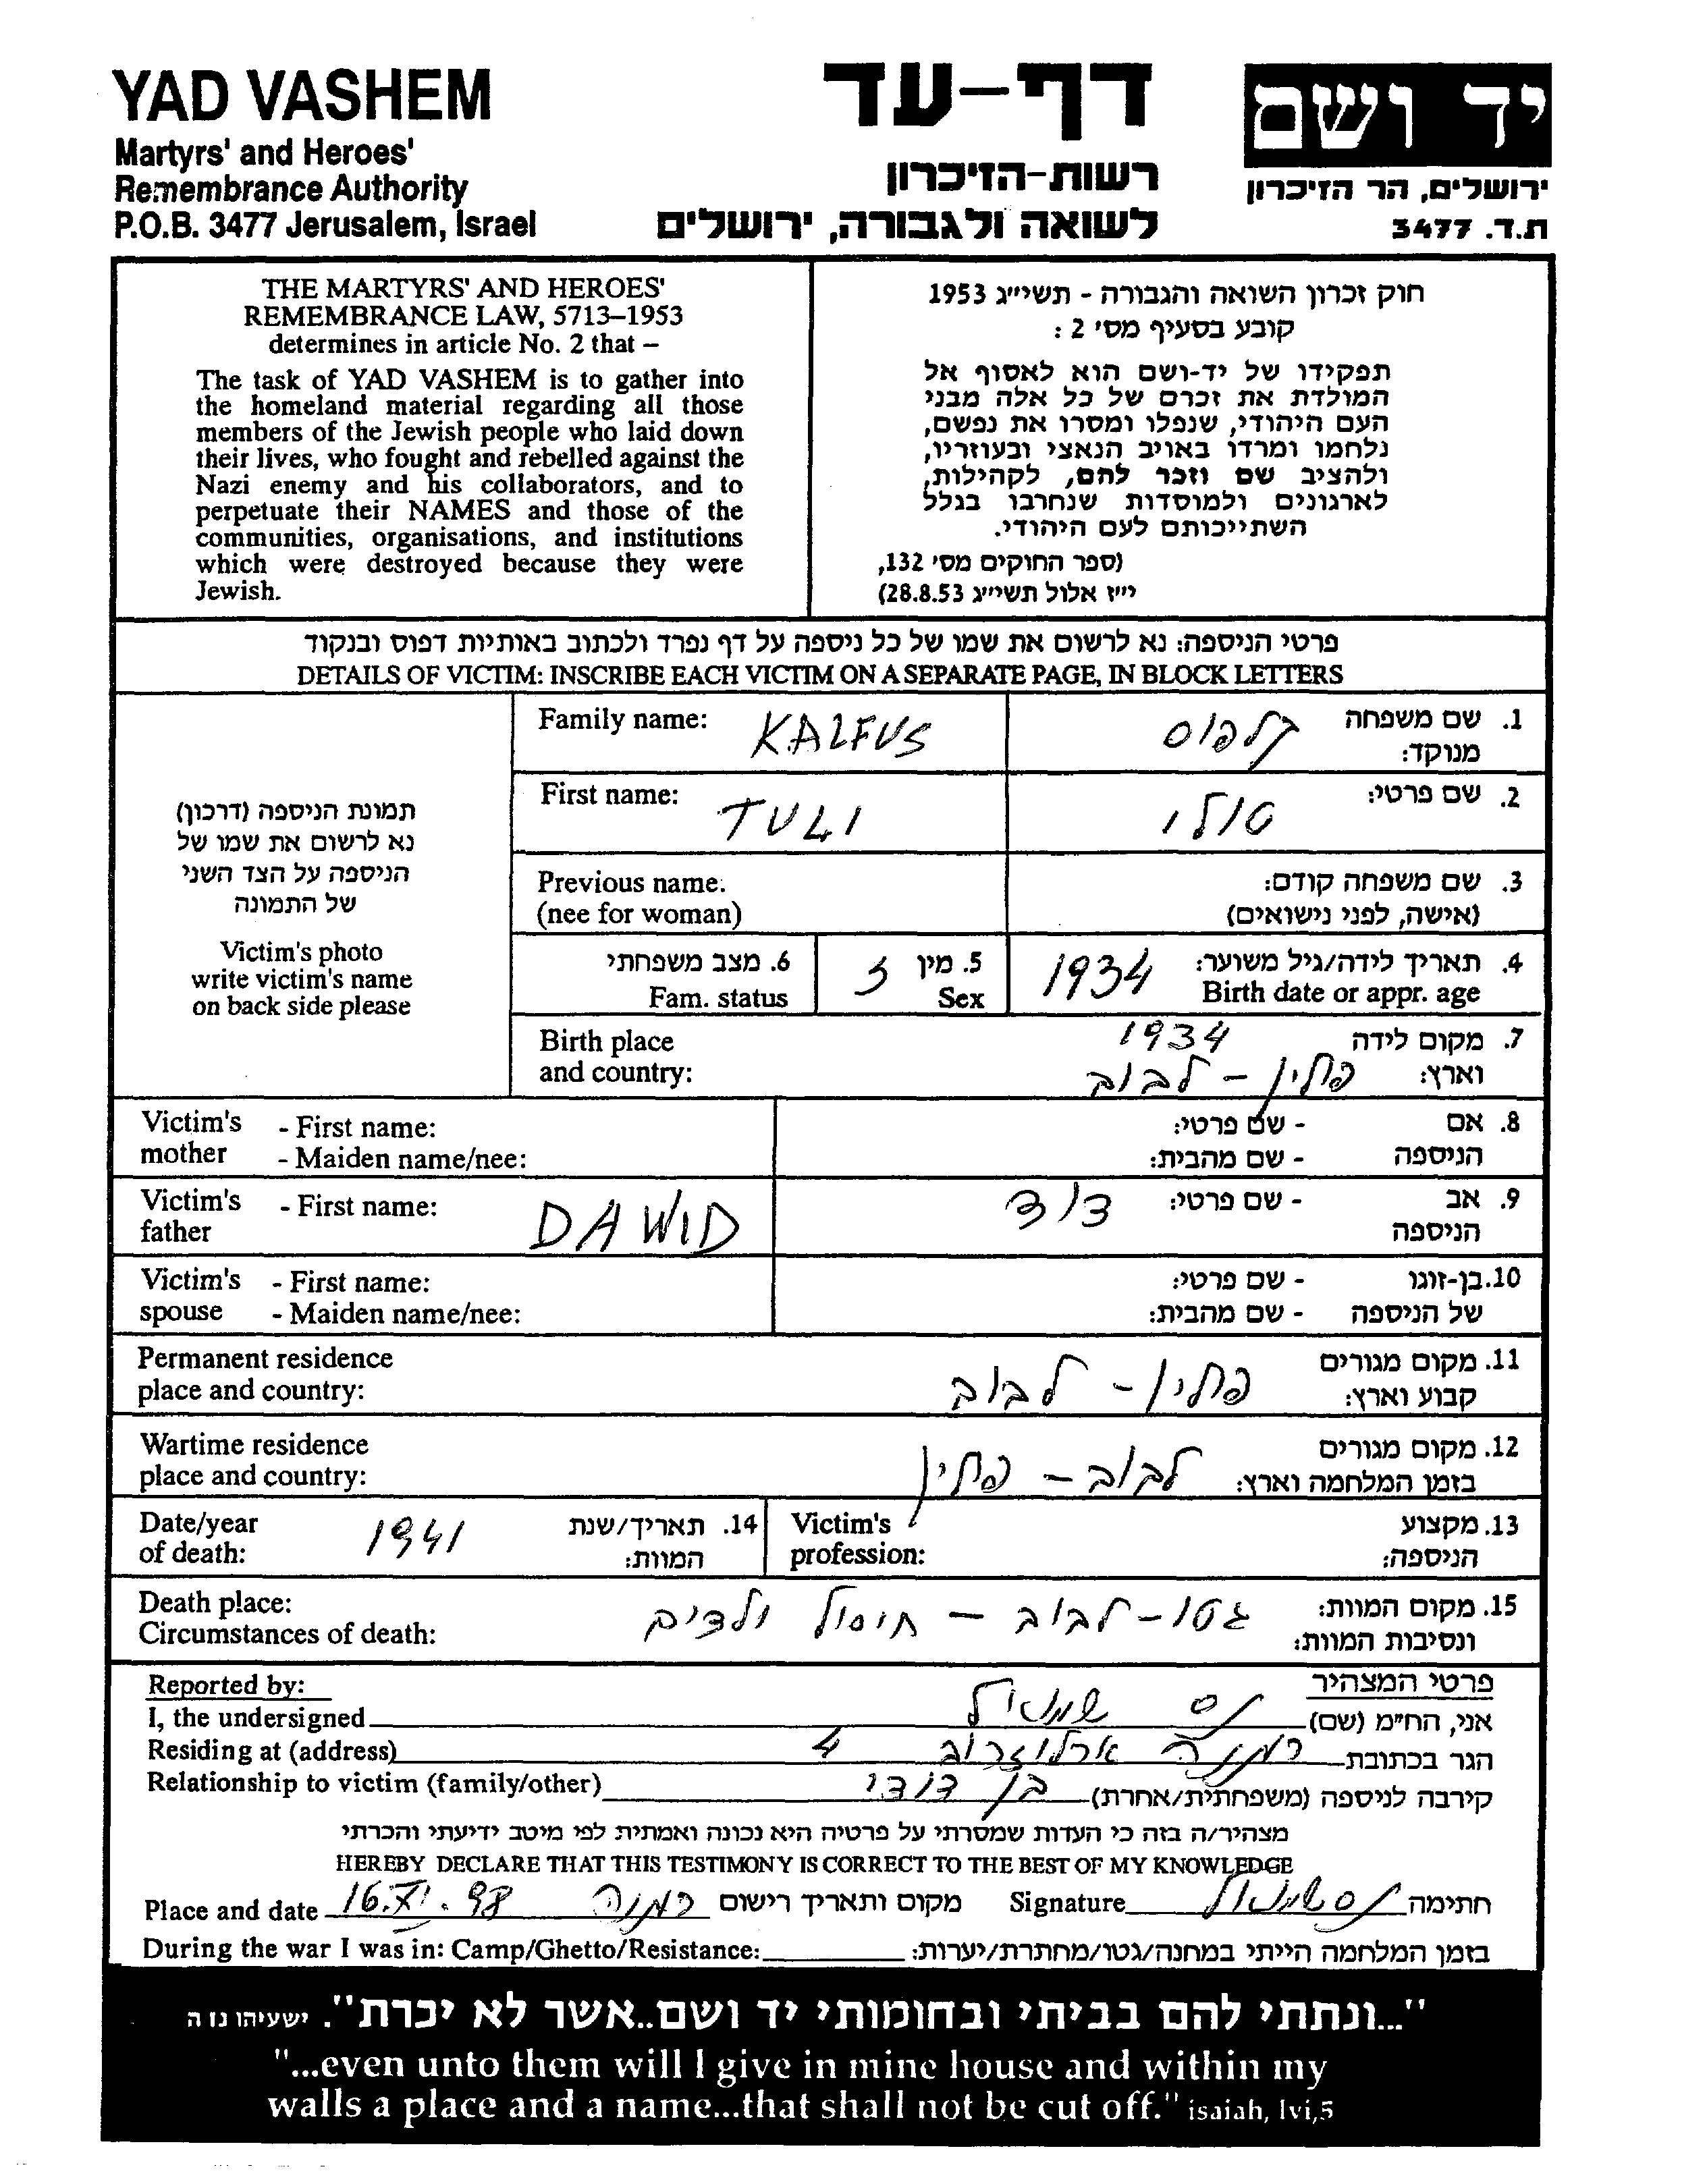 YAD VASHEM
Martyrs' and Heroes'
Remembrance Authority
P.O.B. 3477 Jerusalem, Israel
דף-עד
רשות-הזיכרון
לשואה ולגבורה, ירושלים
יד ושם
ירושלים, הר הזיכרון
ת.ד. 3477
THE MARTYRS' AND HEROES'
REMEMBRANCE LAW, 5713–1953
determines in article No. 2 that –
The task of YAD VASHEM is to gather into
the homeland material regarding all those
members of the Jewish people who laid down
their lives, who fought and rebelled against the
Nazi enemy and his collaborators, and to
perpetuate their NAMES and those of the
communities, organisations, and institutions
which were destroyed because they were
Jewish.
חוק זכרון השואה והגבורה - תשי״ג 1953
קובע בסעיף מס׳ 2 :
תפקידו של יד-ושם הוא לאסוף אל
המולדת את זכרם של כל אלה מבני
העם היהודי, שנפלו ומסרו את נפשם,
נלחמו ומרדו באויב הנאצי ובעוזריו,
ולהציב שם וזכר להם, לקהילות,
לארגונים ולמוסדות שנחרבו בגלל
השתייכותם לעם היהודי.
(ספר החוקים מס׳ 132,
י״ז אלול תשי״ג 28.8.53)
פרטי הניספה: נא לרשום את שמו של כל ניספה על דף נפרד ולכתוב באותיות דפוס ובנקוד
DETAILS OF VICTIM: INSCRIBE EACH VICTIM ON A SEPARATE PAGE, IN BLOCK LETTERS
תמונת הניספה (דרכון)
נא לרשום את שמו של
הניספה על הצד השני
של התמונה
Victim's photo
write victim's name
on back side please
Family name: KALFUS קלפוס 1. שם משפחה
מנוקד:
First name: TULI טולי 2. שם פרטי:
Previous name: 3. שם משפחה קודם:
(nee for woman) (אישה, לפני נישואים)
6. מצב משפחתי 5. מין ז 1934 4. תאריך לידה/גיל משוער:
Fam. status Sex Birth date or appr. age
Birth place 1934 7. מקום לידה
and country: פולין - לבוב וארץ:
Victim's - First name: - שם פרטי: 8. אם
mother - Maiden name/nee: - שם מהבית: הניספה
Victim's - First name: DAWID דוד - שם פרטי: 9. אב
father הניספה
Victim's - First name: - שם פרטי: 10. בן-זוגו
spouse - Maiden name/nee: - שם מהבית: של הניספה
Permanent residence 11. מקום מגורים
place and country: פולין - לבוב קבוע וארץ:
Wartime residence 12. מקום מגורים
place and country: לבוב - פולין בזמן המלחמה וארץ:
Date/year 1941 14. תאריך/שנת Victim's 13. מקצוע
of death: המוות: profession: הניספה:
Death place: גטו - לבוב - חיסול ילדים 15. מקום המוות:
Circumstances of death: ונסיבות המוות:
Reported by: פרטי המצהיר
I, the undersigned שמואל אני, הח״מ (שם)
Residing at (address) רמנה ארלוזרוב 4 הגר בכתובת
Relationship to victim (family/other) בן דודי קירבה לניספה (משפחתית/אחרת)
מצהיר/ה בזה כי העדות שמסרתי על פרטיה היא נכונה ואמתית לפי מיטב ידיעתי והכרתי
HEREBY DECLARE THAT THIS TESTIMONY IS CORRECT TO THE BEST OF MY KNOWLEDGE
Place and date 16.XI.98 מקום ותאריך רישום Signature חתימה
During the war I was in: Camp/Ghetto/Resistance: בזמן המלחמה הייתי במחנה/גטו/מחתרת/יערות:
"...ונתתי להם בביתי ובחומותי יד ושם..אשר לא יכרת". ישעיהו נו ה
"...even unto them will I give in mine house and within my
walls a place and a name...that shall not be cut off." isaiah, lvi,5